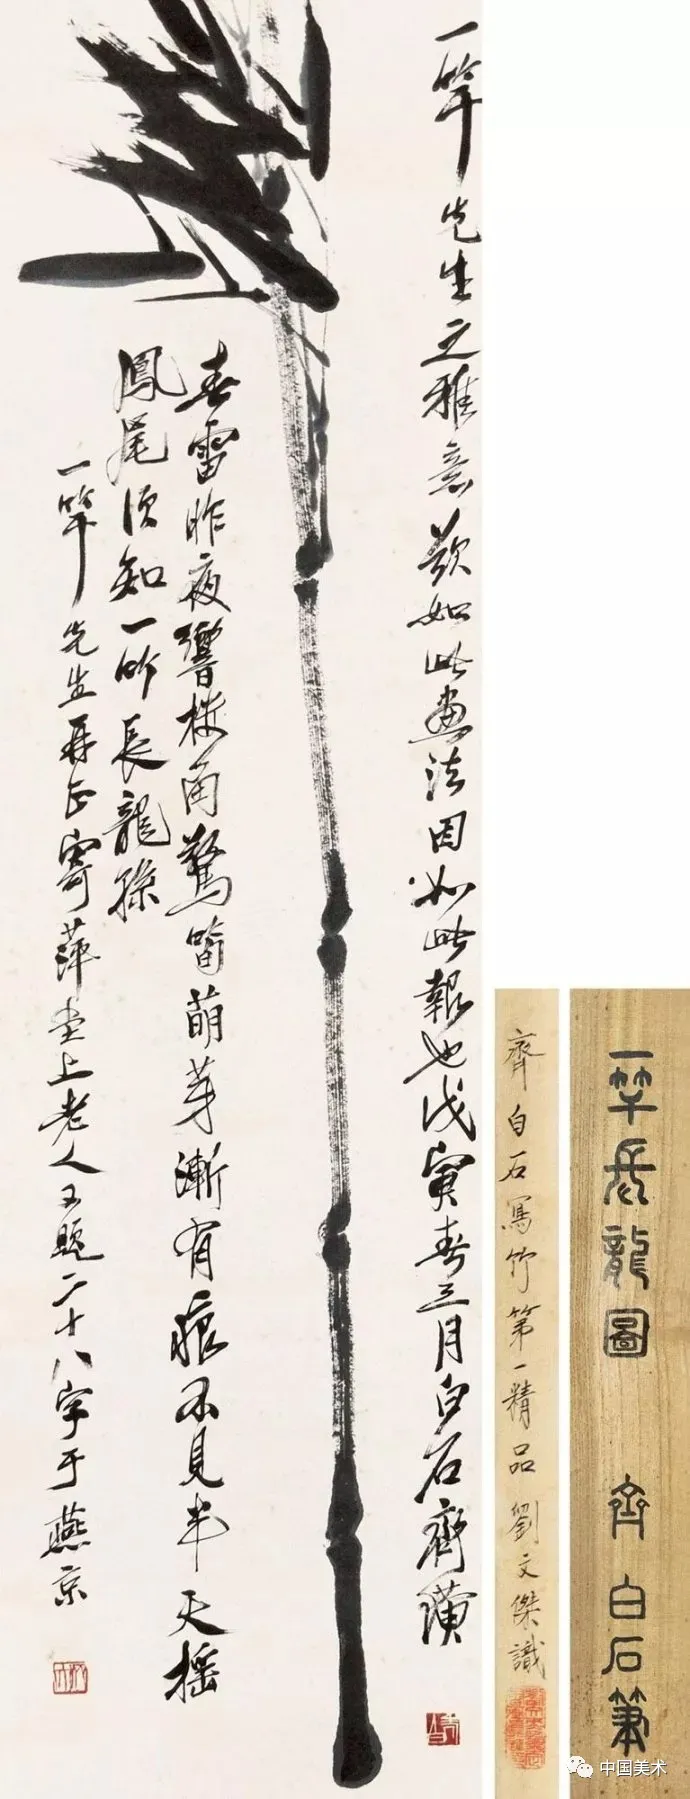 一竿先生之雅意如此畫法因如此報也戊寅春三月白石齊璜
春雷昨夜響樓角驚萌芽漸有痕不見半天搖
鳳尾須知一長龍孫
一竿先生再正寄萍堂上老人又題二十八字于燕京
齊白石寫竹第一精品 劉文傑識
一竿長龍圖 齊白石筆
中国美术